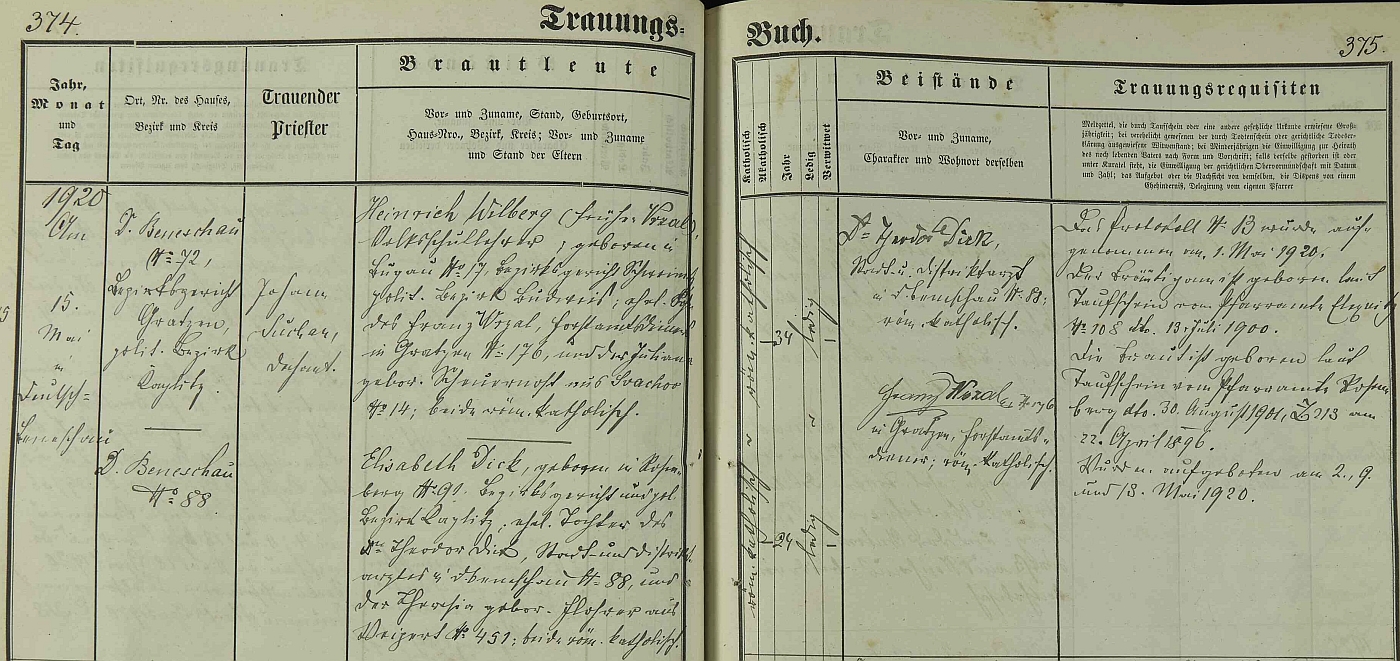 374.
Trauungs-
Jahr,
Monat
und
Tag
Ort, Nr. des Hauses,
Bezirk und Kreis
Trauender
Priester
Brautleute
Vor- und Zuname, Stand, Geburtsort,
Haus-Nro., Bezirk, Kreis; Vor- und Zuname
und Stand der Eltern
1920
Am
15.
Mai
in
Deutsch-
beneschau
D. Beneschau
No 72,
Bezirksgericht
Gratzen,
polit. Bezirk
Kaplitz.
D. Beneschau
No 88.
Johann
Dechant.
Heinrich Wilberg (früher Wrzal),
Volksschullehrer, geboren in
Bugau No 17, Bezirksgericht
polit. Bezirk Budweis; ehel.
des Franz Wrzal, Forstamtsdieners
in Gratzen No 176, und der Juliana
gebor. aus
No 14; beide röm. katholisch.
Elisabeth Dick, geboren in Rosen-
berg No 91. Bezirksgericht und pol.
Bezirk Kaplitz, ehel. Tochter des
Dr. Theodor Dick, Stadt- und Distrikts-
arztes in D. Beneschau No 88, und
der Theresia gebor. aus
Weipert No 451; beide röm. katholisch.
Buch.
375.
Katholisch
Akatholisch
Jahr
Ledig
Verwitwet
Beistände
Vor- und Zuname,
Charakter und Wohnort derselben
Trauungsrequisiten
Meldzettel, die durch Taufschein oder eine andere gesetzliche Urkunde erwiesene Groß-
jährigkeit; bei verehelicht gewesenen der durch Todtenschein oder gerichtliche Todeser-
klärung ausgewiesene Witwenstand; bei Minderjährigen die Einwilligung zur Heirath
des noch lebenden Vaters nach Form und Vorschrift; falls derselbe gestorben ist oder
unter Kuratel steht, die Einwilligung der gerichtlichen Obervormundschaft mit Datum
und Zahl; das Aufgebot oder die Nachsicht von demselben, die Dispens von einem
Ehehinderniß, Delegirung vom eigenen Pfarrer
röm. katholisch
34
ledig
röm. katholisch
24
ledig
Dr. Theodor Dick,
Stadt- u. Distriktsarzt
in D. Beneschau No 88;
röm. katholisch.
Franz Wrzal
in Gratzen, Forstamts-
diener; röm. katholisch.
Das Protokoll No 13 wurde auf-
genommen am 1. Mai 1920.
Der Bräutigam ist geboren laut
Taufschein vom Pfarramte
No 108 dto. 13. Juli 1900.
Die Braut ist geboren laut
Taufschein vom Pfarramte Rosen-
berg dto. 30. August 1901, Z 213 am
22. April 1896.
Wurden aufgeboten am 2., 9.
und 13. Mai 1920.